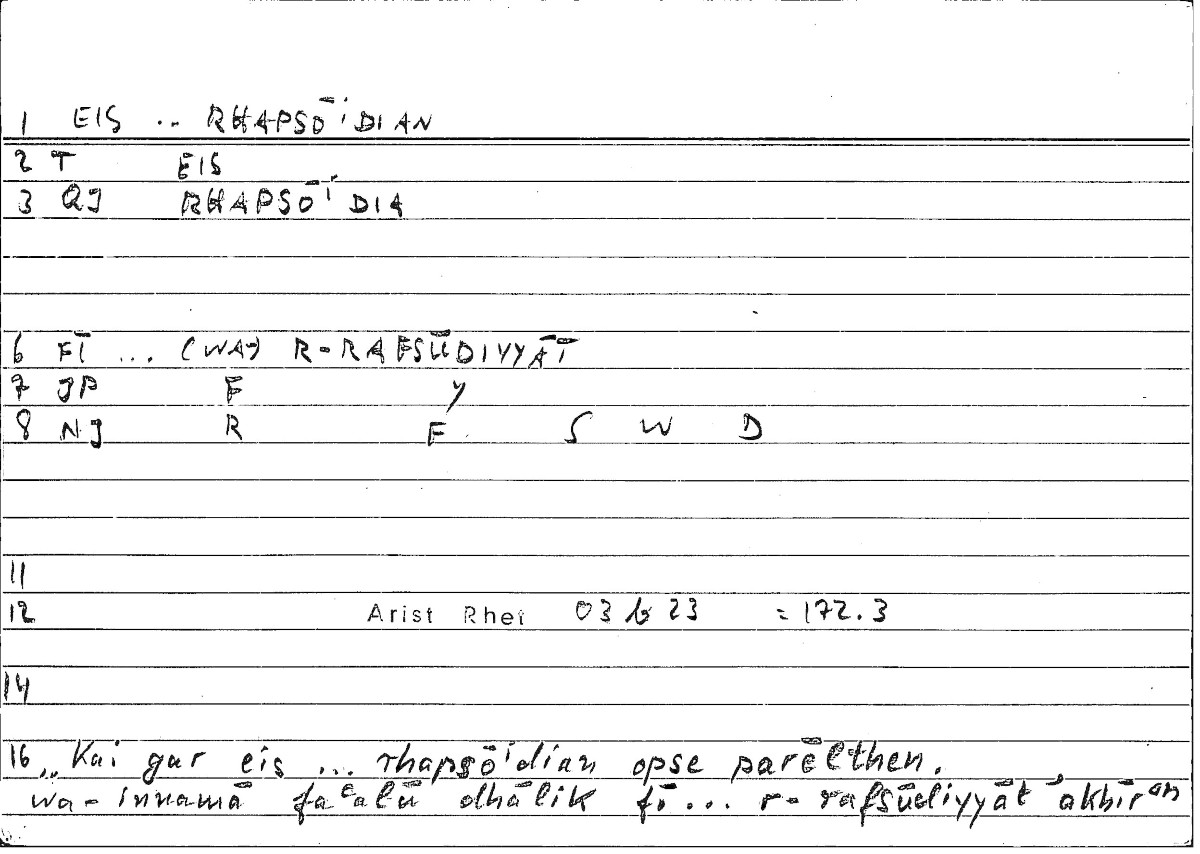 1 EIS .. RHAPSŌ'DIAN
2 T EIS
3 QJ RHAPSŌ'DIA
6 FĪ ... (WA-) R-RAFSŪDIYYĀT
7 JP F Y
8 NJ R F S W D
11
12 Arist Rhet 03 b 23 = 172.3
14
16 „Kai gar eis ... rhapsō'dian opse parēlthen.
wa-innamā faʿalū dhālik fī... r-rafsūdiyyāt ʾakhīran